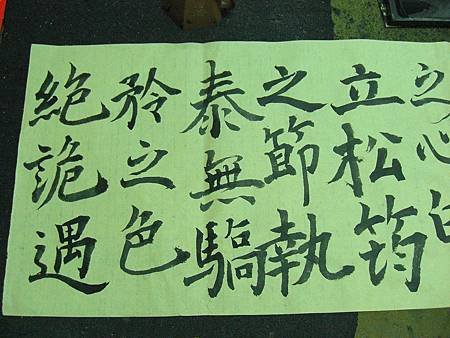 之心
立松筠
之節執
泰無驕
矜之色
絕詭遇